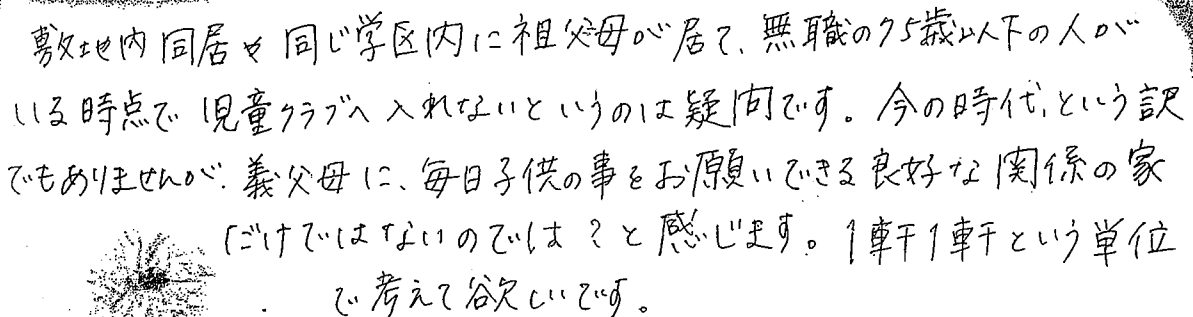 敷地内同居や同じ学区内に祖父母が居て、無職の75歳以下の人が
いる時点で児童クラブへ入れないというのは疑問です。今の時代、という訳
でもありませんが、義父母に、毎日子供の事をお願いできる良好な関係の家
だけではないのでは？と感じます。1軒1軒という単位
で考えて欲しいです。